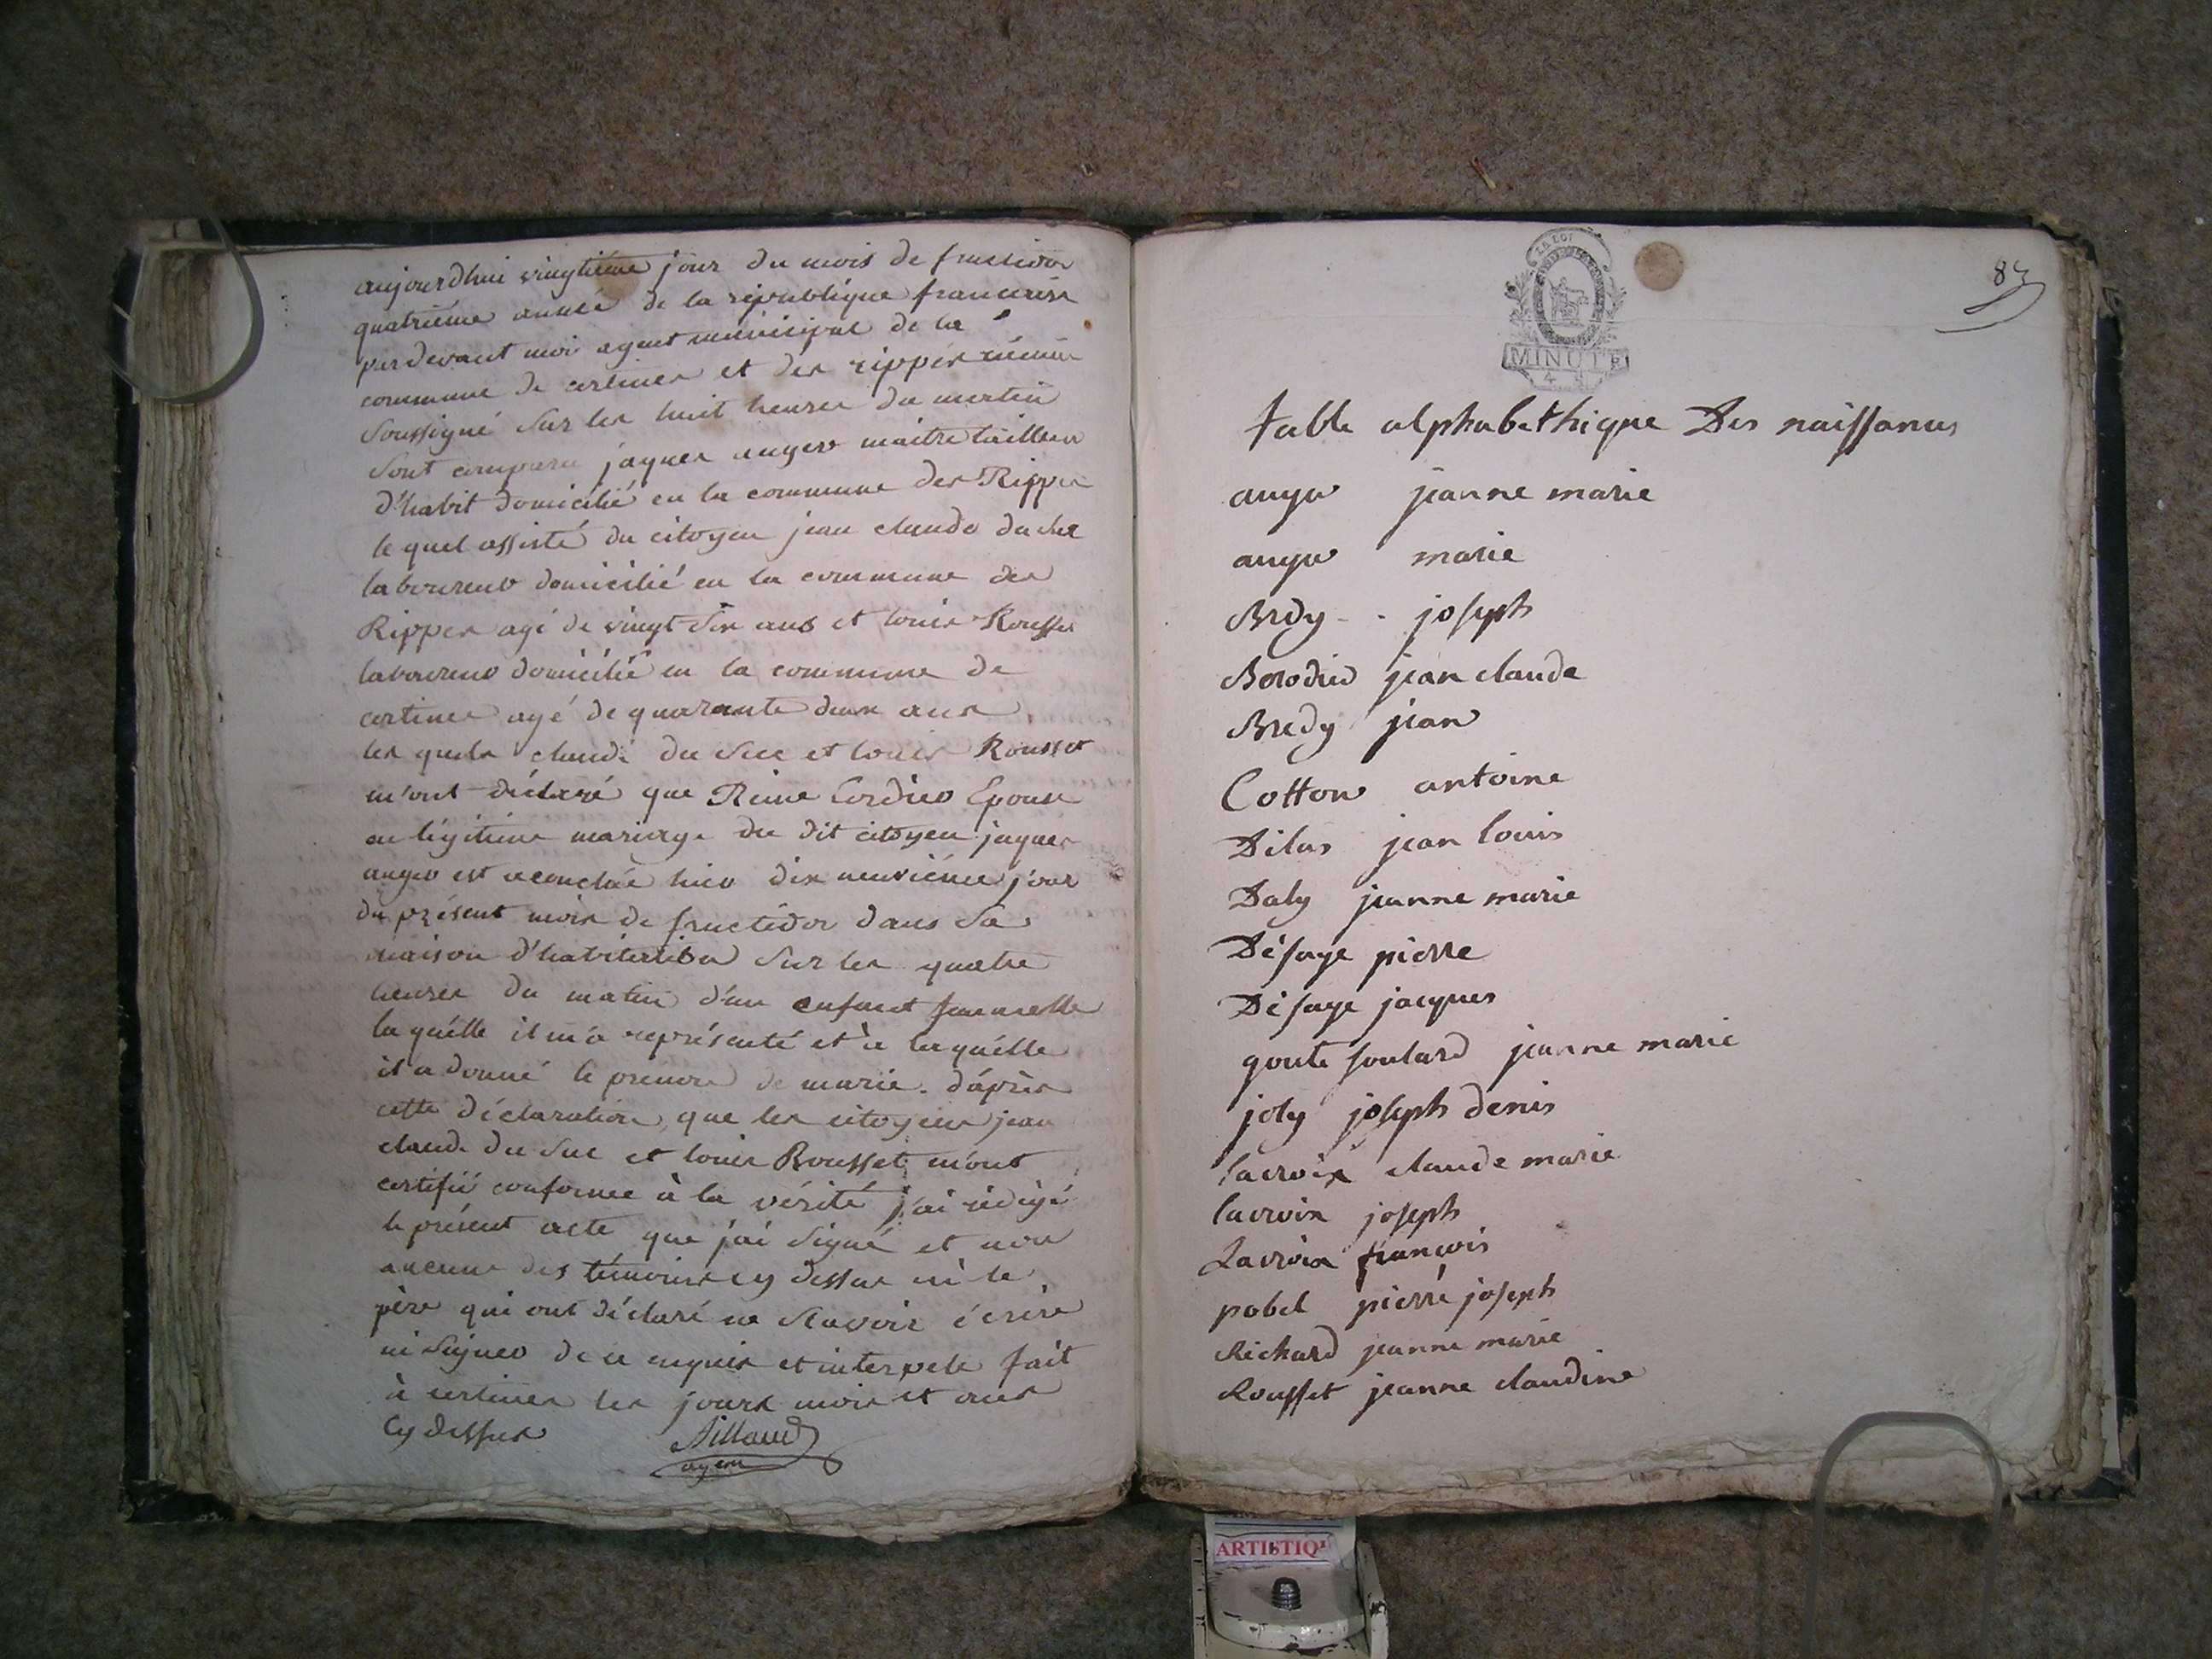 aujourdhui vingtième jour du mois de fructidor
quatrième année de la république francaise
pardevant moi agent municipal de la
commune de certines et des rippes réunie
soussigné sur les huit heures du matin
sont comparu jaques auger maitre tailleur
d'habit domicilié en la commune des Rippes
le quel assisté du citoyen jean claude du suc
laboureur domicilié en la commune des
Rippes agé de vingt six ans et louis Rousset
laboureur domicilié en la commune de
certines agé de quarante deux ans
les quels claude du suc et louis Rousset
m'ont déclaré que Reine Cordier Epouse
en légitime mariage du dit citoyen jaques
auger est accouchée hier dix neuvième jour
du présent mois de fructidor dans sa
maison d'habitation sur les quatre
heures du matin d'un enfant femmelle
la quélle il m'a représenté et à laquélle
il a donné le prenom de marie. d'après
cette déclaration que les citoyens jean
claude du suc et louis Rousset m'ont
certifié conforme à la vérité j'ai rédigé
le présent acte que j'ai signé et non
aucuns des témoins cy dessus ni le
père qui ont déclaré ne scavoir écrire
ni signer de ce enquis et interpelé fait
à certines les jours mois et ans
cy dessus
agent
83
LA LOI
MINUTE
table alphabethique Des naissances
auger jeanne marie
auger marie
Bredy - - joseph
jean claude
Bredy jean
Cotton antoine
Dilas jean louis
Daly jeanne marie
Désage pierre
Désage jacques
goute soulard jeanne marie
joly joseph denis
lacroix claude marie
lacroix joseph
Lacroix françois
pobel pierre joseph
Richard jeanne marie
Rousset jeanne claudine
ARTISTIQ